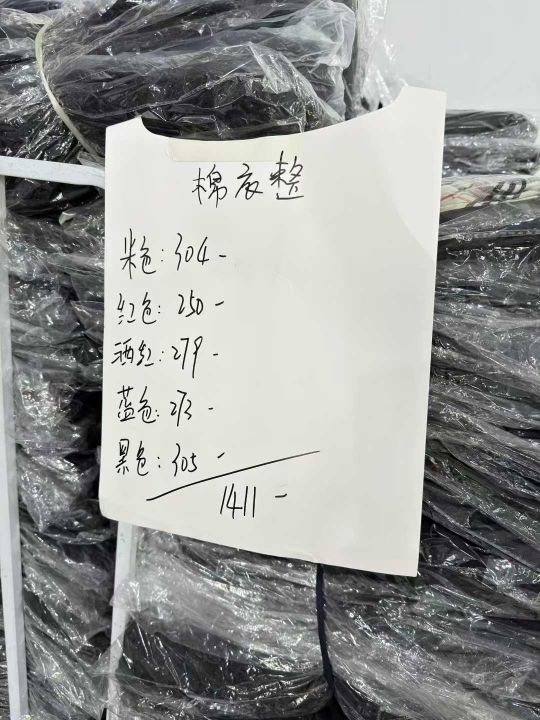 棉衣整
米色：304-
红色：250-
酒红：279-
蓝色：273-
黑色：305-
1411-